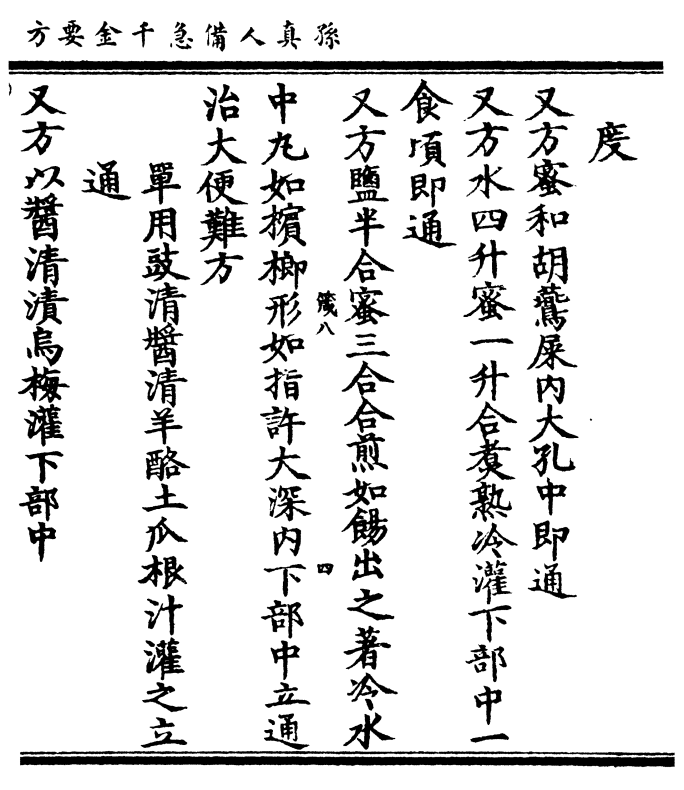 孫真人備急千金要方
度
又方蜜和胡鷰屎内大孔中即通
又方水四升蜜一升合煑熟冷灌下部中一
食頃即通
又方鹽半合蜜三合合煎如餳出之著冷水
箴八
四
中丸如檳榔形如指許大深内下部中立通
治大便難方
單用豉清醬清羊酪土瓜根汁灌之立
通
又方以醬清漬烏梅灌下部中